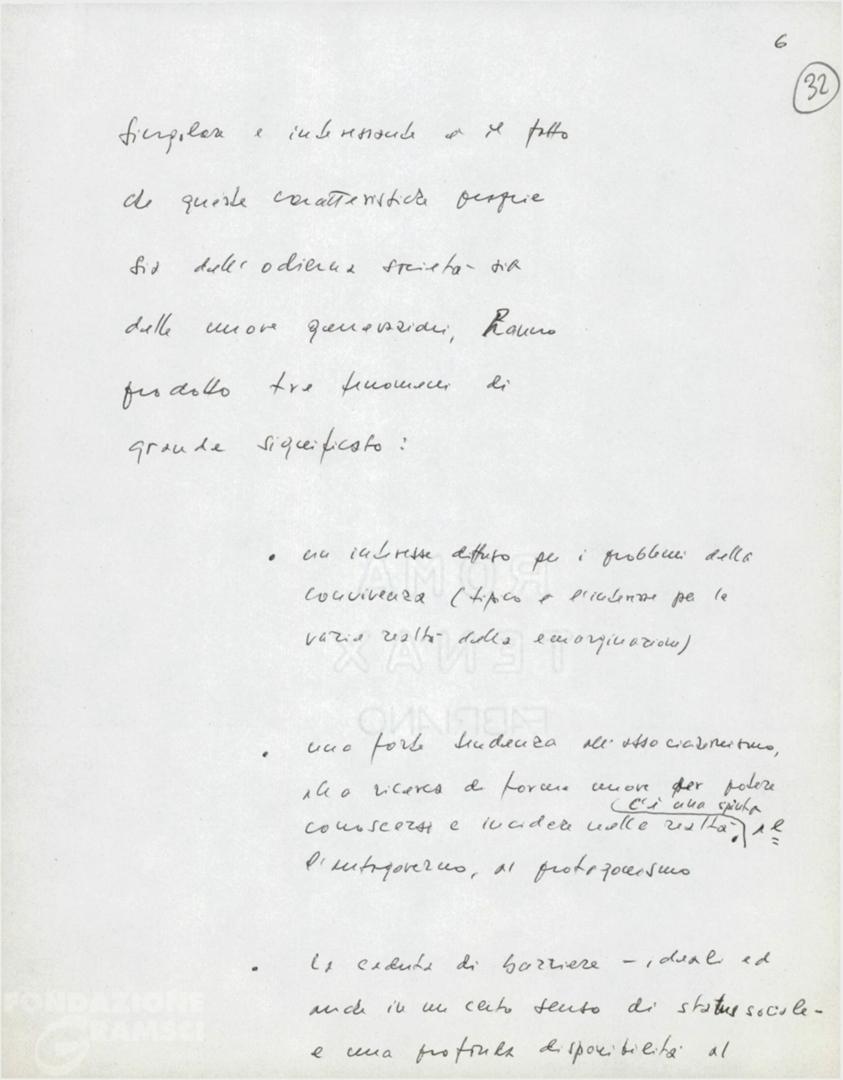 6
32
Singolare e interessante è il fatto
che queste caratteristiche proprie
sia dell'odierna società sia
delle nuove generazioni, hanno
prodotto tre fenomeni di
grande significato:
• un interesse diffuso per i problemi della
convivenza (tipico è l'interesse per le
varie realtà della emarginazione)
• una forte tendenza all'associazionismo,
alla ricerca di forme nuove per potere
conoscersi e incidere nella realtà.
(c'è una spinta al
l'autogoverno, al protagonismo
• la caduta di barriere – ideali ed
anche in un certo senso di status sociale –
e una profonda disponibilità al
ROMA
TENAX
FABRIANO
FONDAZIONE
GRAMSCI